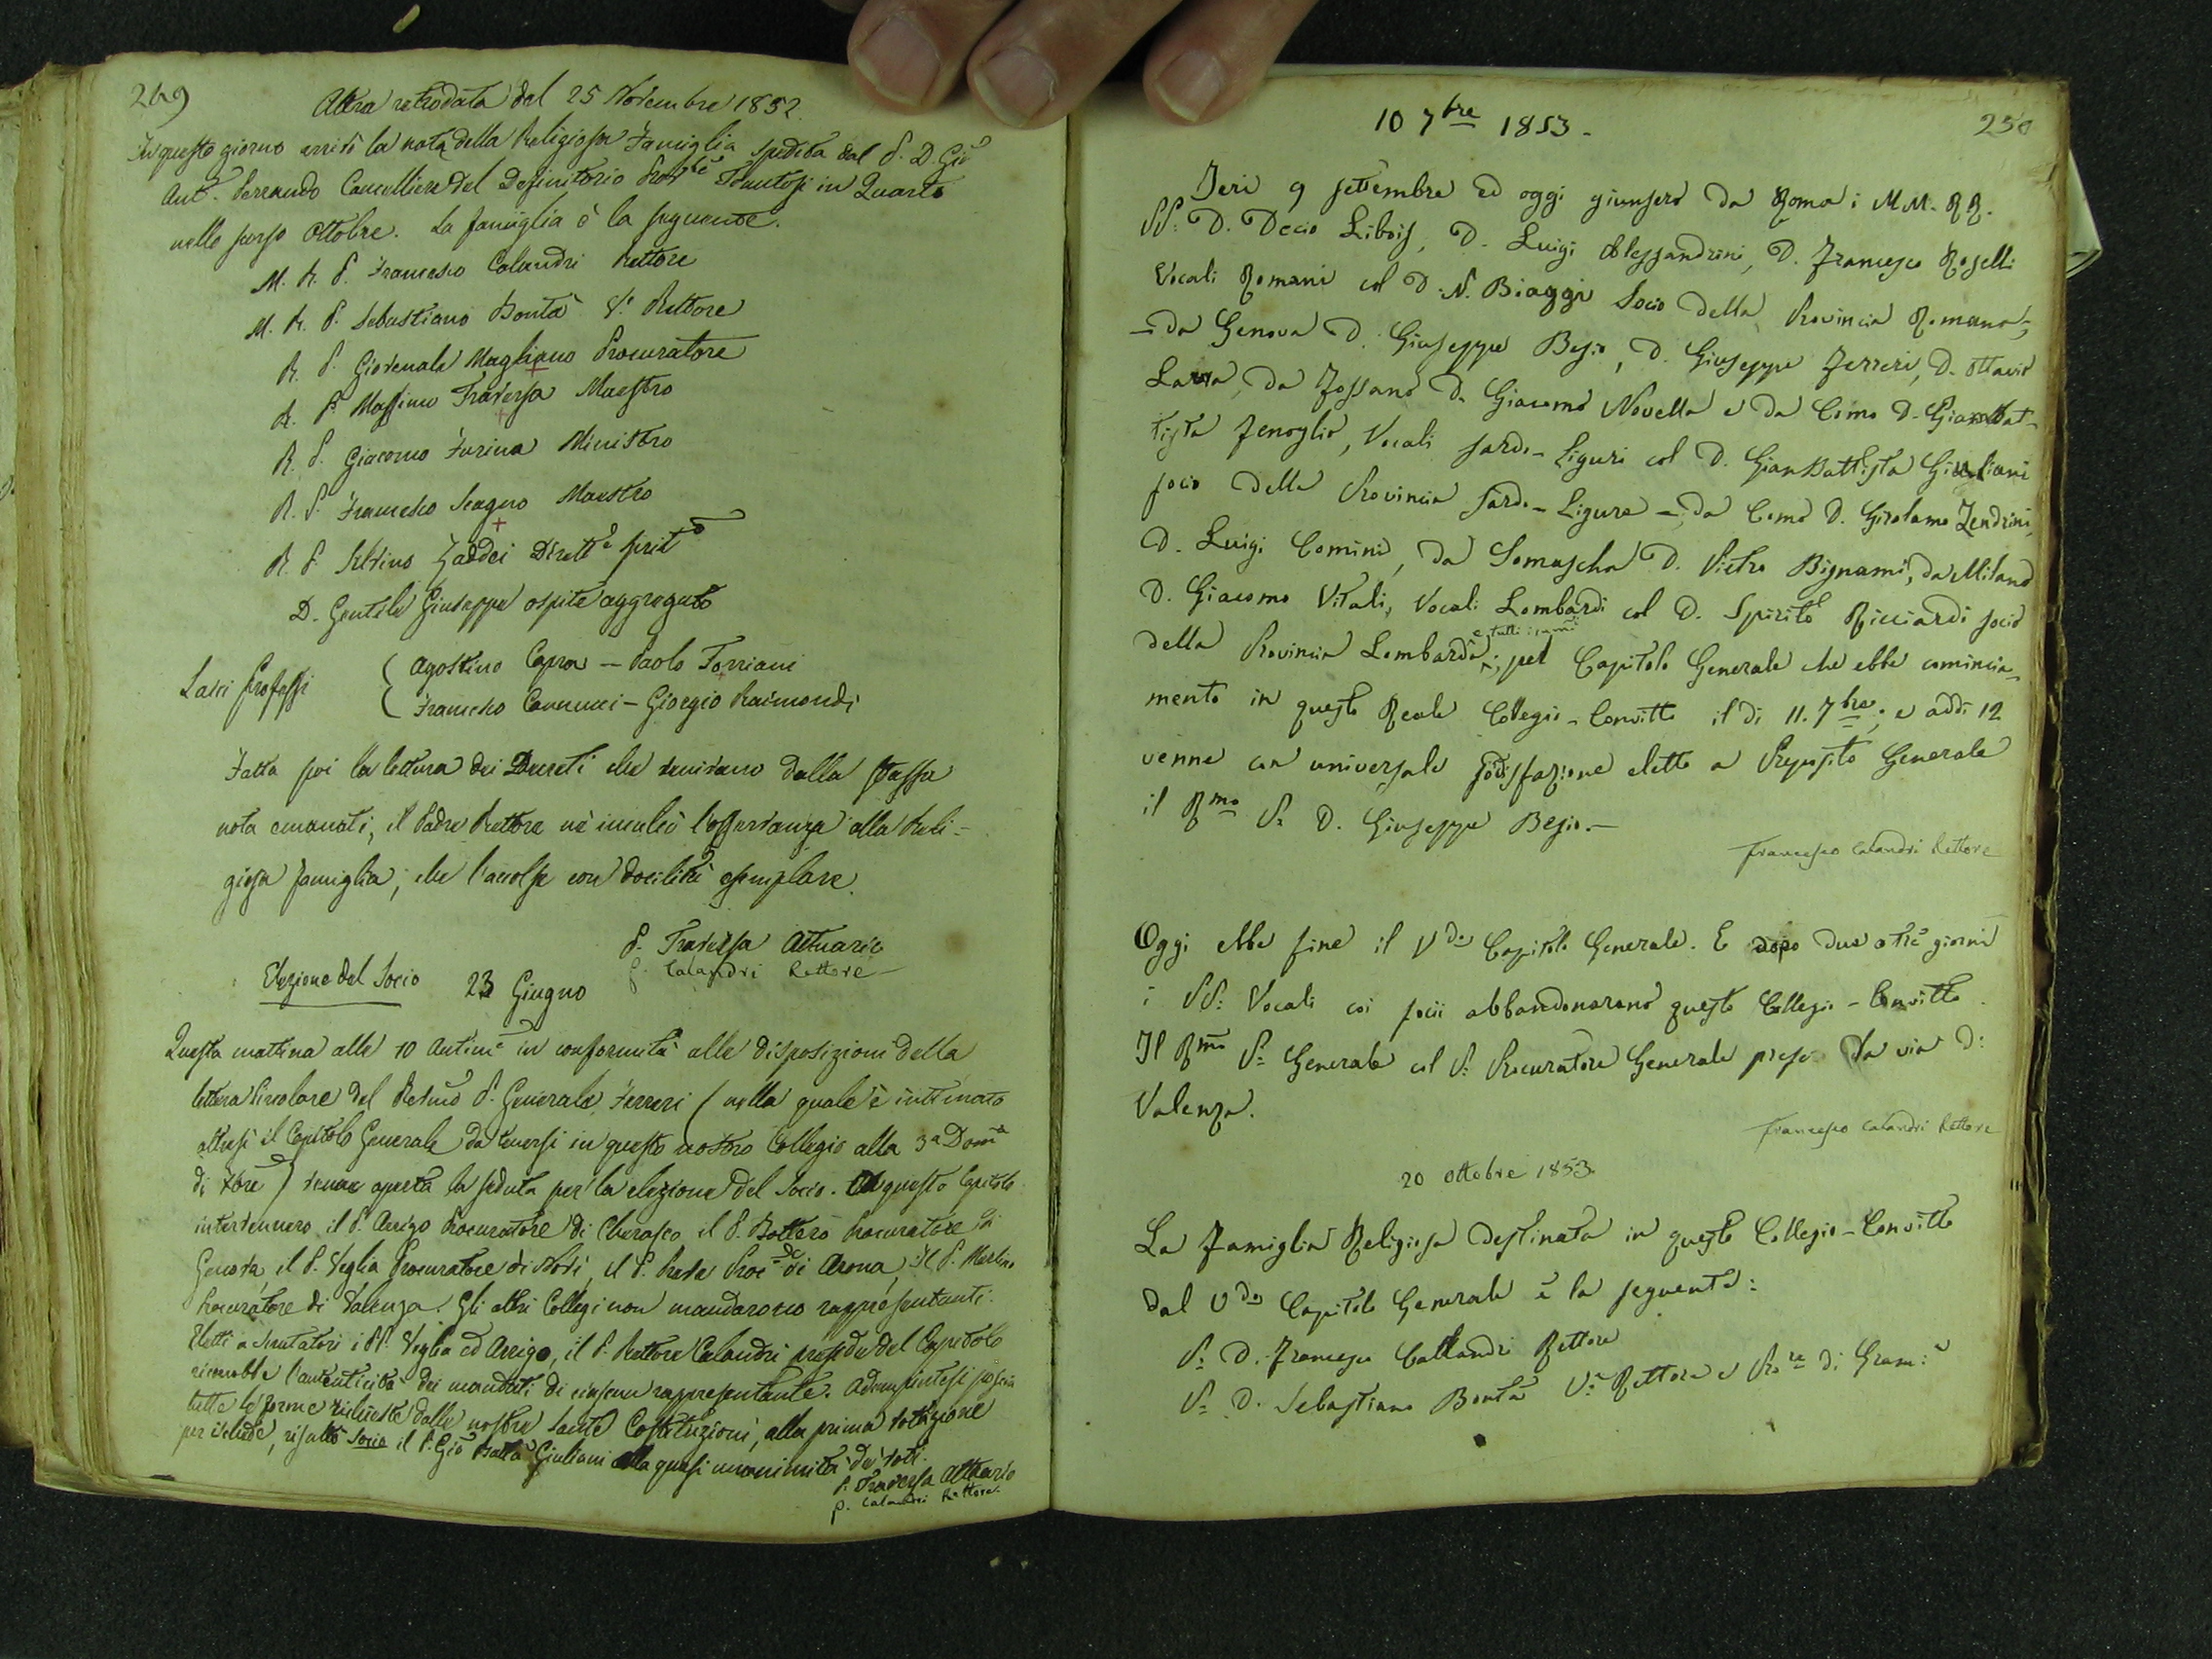 249
Altra retrodata del 25 Novembre 1852.
In questo giorno arrivò la nota della Religiosa Famiglia spedita dal P. D. Gio
Ant. Ferrando Cancelliere del Definitorio Prov.le Tenutosi in Quarto
nello scorso Ottobre. La famiglia è la seguente.
M. R. P. Francesco Calandri Rettore
M. R. P. Sebastiano Bontà V.e Rettore
R. P. Giovenale Magliano Procuratore
R. P. Massimo Traversa Maestro
R. P. Giacomo Furina Ministro
R. P. Francesco Scagno Maestro
R. P. Silvino Zaddei Dirett.e Spirit.
D. Gentile Giuseppe ospite aggregato
Laici Professi
Agostino Capra - Paolo Torriani
Francesco Cannucci - Giorgio Raimondi
Fatta poi la lettura dei Decreti che venivano dalla stessa
nota emanati, il Padre Rettore ne inculcò l'osservanza alla Reli-
giosa famiglia, che l'accolse con docilità esemplare.
P. Traversa Attuario
P. Calandri Rettore
Elezione del Socio 23 Giugno
Questa mattina alle 10 Antim.e in conformità alle disposizioni della
lettera Circolare del Revmo P. Generale Ferreri (nella quale è intimato
altresì il Capitolo Generale da tenersi in questo nostro Collegio alla 3a Dom.a
di 7bre) venne aperta la seduta per la elezione del Socio. A questo Capitolo
intervennero il P. Arrigo Procuratore di Cherasco il P. Bottero Procuratore di
Genova, il P. Veglia Procuratore di Novi, il P. Proc. di Arona, il P. Merlino
Procuratore di Valenza. Gli altri Collegi non mandarono rappresentanti.
Eletti a Scrutatori i PP. Veglia ed Arrigo, il P. Rettore Calandri preside del Capitolo
riconobbe l'autenticità dei mandati di ciascun rappresentante. Adempiutesi poscia
tutte le forme richieste dalle nostre sante Costituzioni, alla prima votazione
per ischede, risultò Socio il P. Gio Batta Giuliani alla quasi unanimità de' voti.
P. Traversa Attuario
P. Calandri Rettore.
250
10 7bre 1853.
Jeri 9 settembre ed oggi giunsero da Roma i MM. RR.
PP: D. Decio Libois, D. Luigi Alessandrini, D. Francesco Roselli
Vocali Romani col D. N. Biaggi Socio della Provincia Romana;
- da Genova D. Giuseppe Besio, D. Giuseppe Ferreri, D. Ottavio
da Fossano D. Giacomo Novella e da Como D. Giambat-
tista Fenoglio, Vocali Sardo-Liguri col D. GianBattista Giuliani
socio della Provincia Sardo-Ligure - da Como D. Girolamo Zendrini,
D. Luigi Comini, da Somascha D. Pietro Bignami, da Milano
D. Giacomo Vitali, Vocali Lombardi col D. Spirito Ricciardi socio
della Provincia Lombarda; pel Capitolo Generale che ebbe comincia-
mento in questo Reale Collegio-Convitto il dì 11. 7bre; e addì 12
venne con universale sodisfazione eletto a Preposito Generale
il Rmo P. D. Giuseppe Besio.-
Francesco Calandri Rettore
Oggi ebbe fine il Vdo Capitolo Generale. E dopo due o tre giorni
i PP: Vocali coi socii abbandonarono questo Collegio-Convitto.
Il Rmo P. Generale col P. Procuratore Generale prese la via di
Valenza.
Francesco Calandri Rettore
20 Ottobre 1853.
La Famiglia Religiosa destinata in questo Collegio-Convitto
dal Vdo Capitolo Generale è la seguente:
P. D. Francesco Callandri Rettore
P. D. Sebastiano Bontà V. Rettore e Pro.re di Gram: